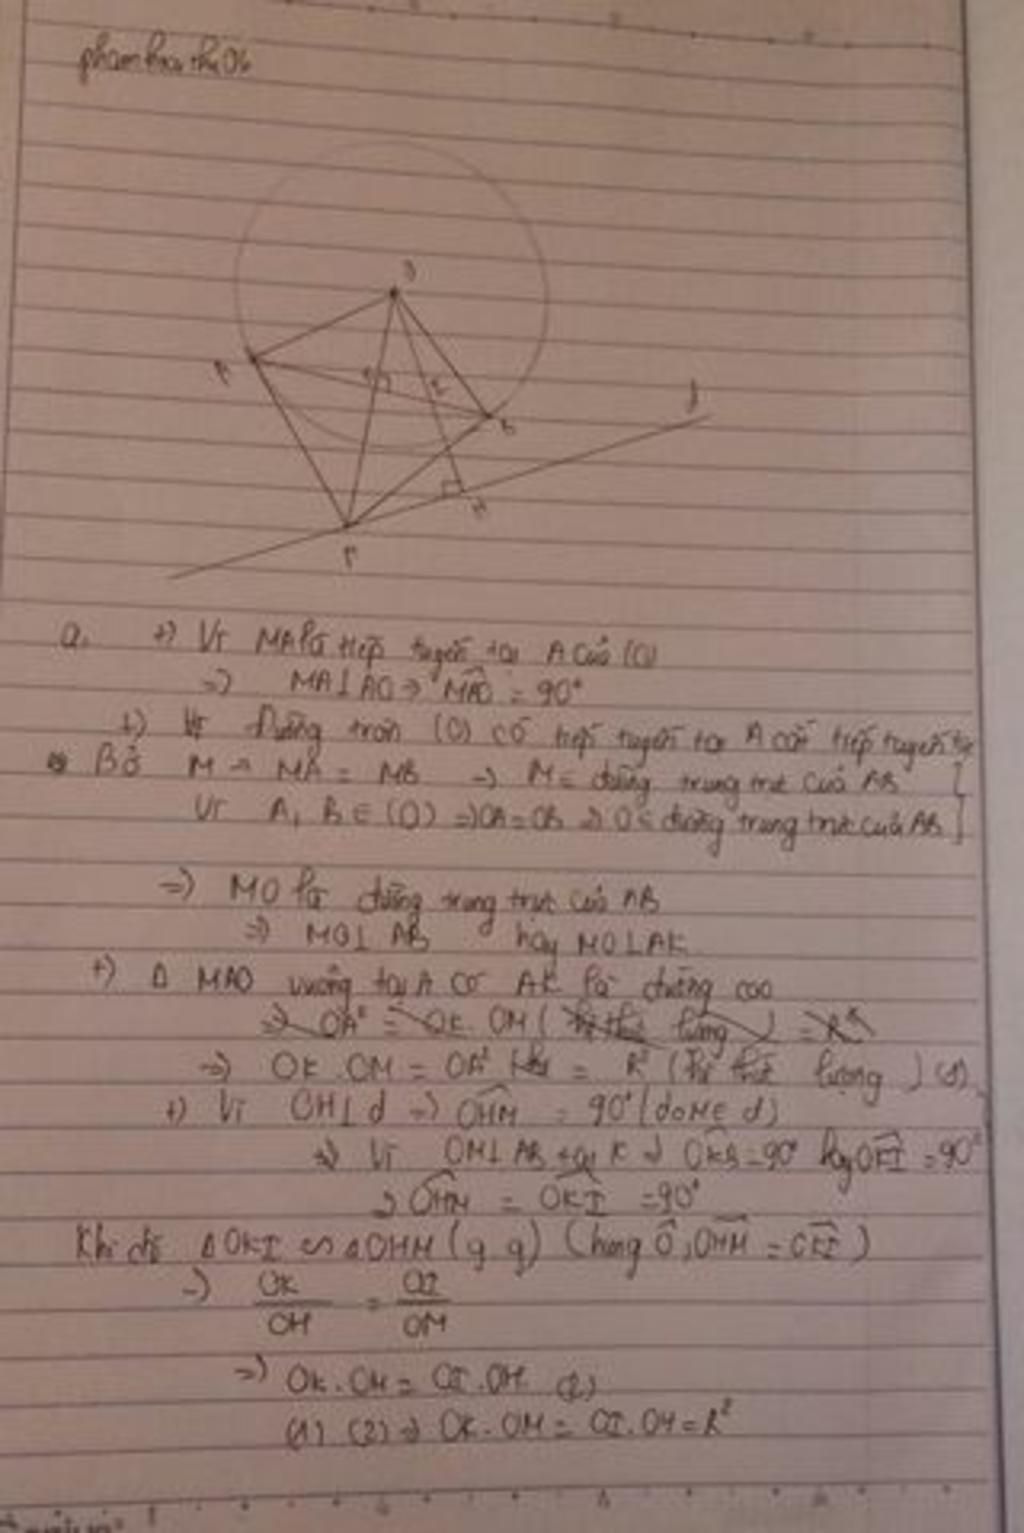 O
A
K
I
B
d
H
M
a. +) Vì MA là tiếp tuyến tại A của (O)
=> MA⊥AO => MAO = 90°
+) Vì đường tròn (O) có tiếp tuyến tại A cắt tiếp tuyến tại
B ở M => MA = MB => M ∈ đường trung trực của AB
Vì A, B ∈ (O) => OA = OB => O ∈ đường trung trực của AB
=> MO là đường trung trực của AB
=> MO⊥AB hay MO⊥AK
+) Δ MAO vuông tại A có AK là đường cao
=> OK.OM = OA² = R² (hệ thức lượng) (1)
+) Vì OH⊥d => OHM = 90° (do M∈d)
=> Vì OM⊥AB tại K => OKB = 90° hay OKI = 90°
=> OHM = OKI = 90°
Khi đó ΔOKI ∽ ΔOHM (g g) (chung O, OHM = OKI)
=> OK/OH = OI/OM
=> OK.OM = OI.OH (2)
(1) (2) => OK.OM = OI.OH = R²